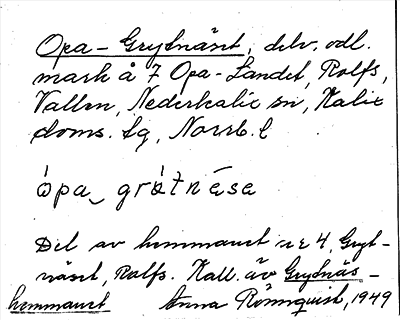 Opa-Grytnäset, delv. odl.
mark å 7 Opa-Landet, Rolfs,
Vallen, Nederkalix sn, Kalix
doms. tg, Norrb. l
ópa grøtnése
Del av hemmanet nr 4, Gryt-
näset, Rolfs. Kall. äv Grytnäs-
hemmanet Anna Rönnquist, 1949